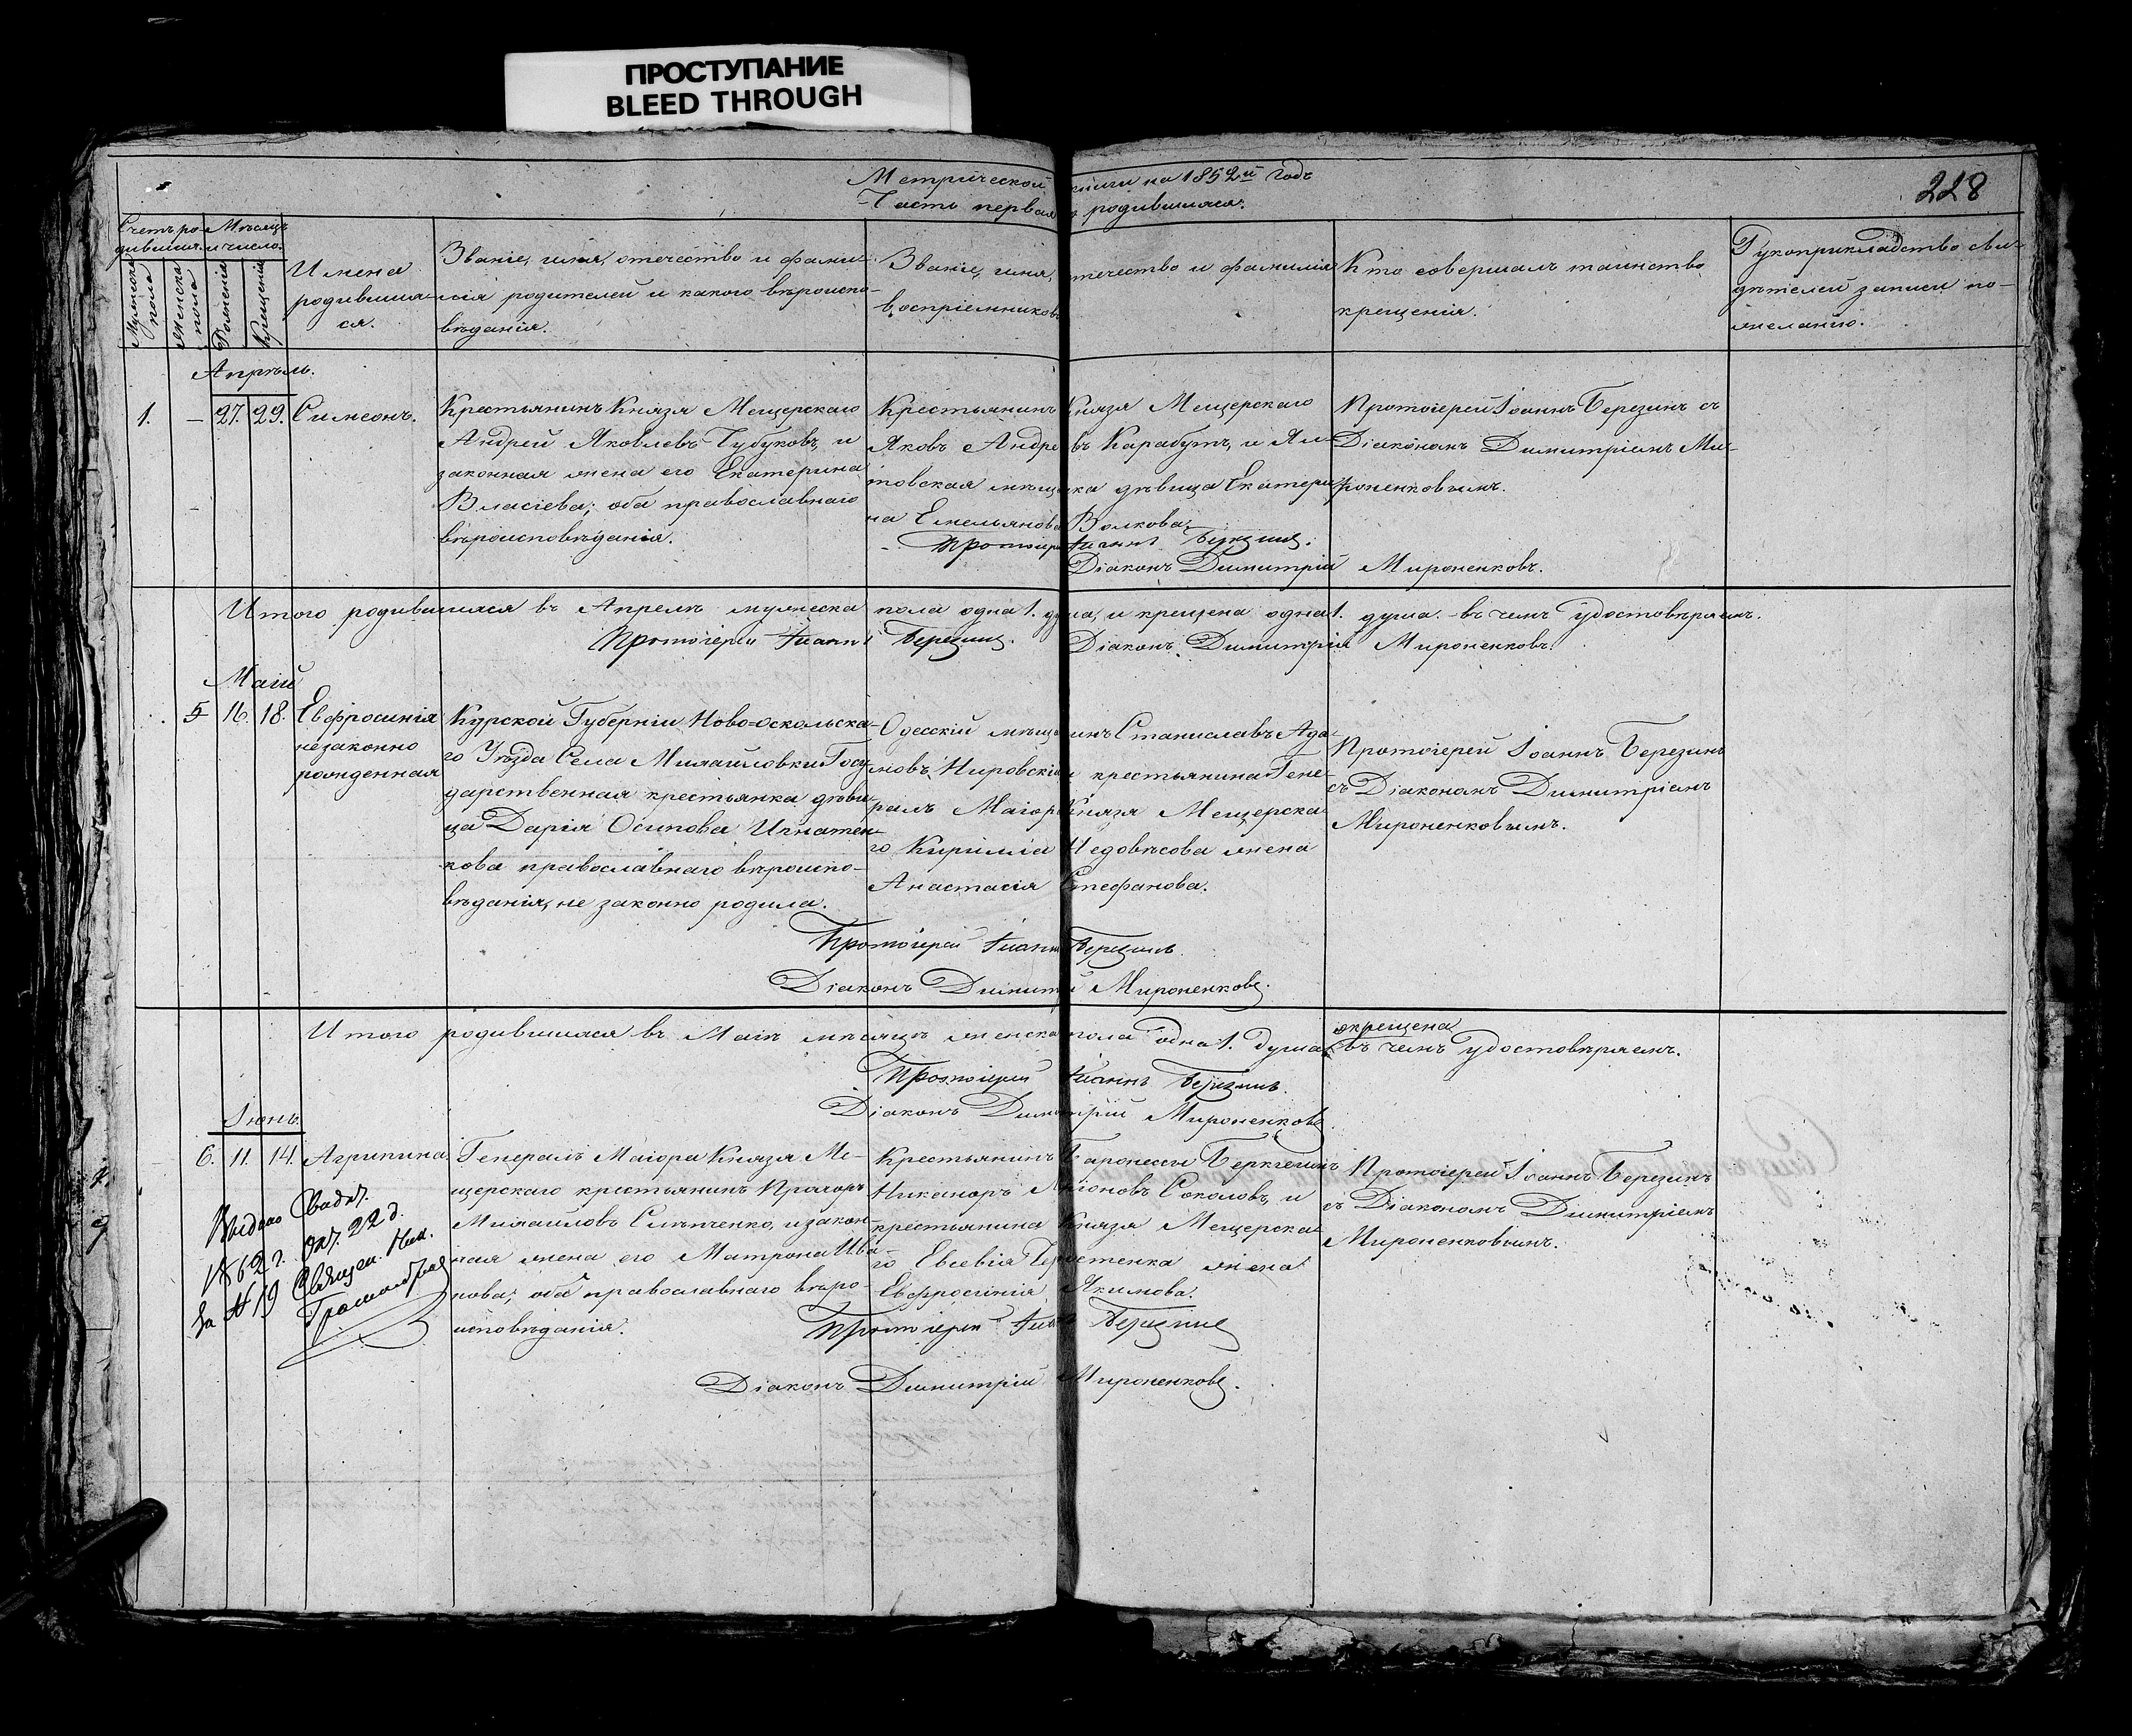 ПРОСТУПАНИЕ
BLEED THROUGH
Метрической книги на 1852й годъ
228
Часть первая родившихся.
Счетъ родившихся.
Мужеска пола
Женска пола
Мѣсяцъ и число.
Рожденія
Крещенія
Имена
родивших-
ся.
Званіе, имя, отечество и фами-
лія родителей и какого вѣроиспо-
вѣданія.
Званіе, имя, отечество и фамилія
воспріемниковъ
Кто совершалъ таинство
крещенія.
Рукоприкладство сви-
дѣтелей записи по-
желанію.
Апрѣль.
1. – 27. 29. Симеонъ.
Крестьянинъ Князя Мещерскаго
Андрей Яковлевъ Чубуковъ, и
законная жена его Екатерина
Власіева; оба православнаго
вѣроисповѣданія.
Крестьянинъ Князя Мещерскаго
Яковъ Андреевъ Карабутъ, и Ям-
товская мѣщанка дѣвица Екатери-
на Емельянова Волкова.
Протоіерей Іоаннъ Березинъ съ
Діакономъ Димитріемъ Ми-
роненковымъ.
Протоіерей Іоаннъ Березинъ.
Діаконъ Димитрій Мироненковъ.
Итого родившихся въ Апрелѣ мужеска пола одна 1. душа, и крещена одна 1. душа. въ чемъ удостовѣряемъ.
Протоіерей Іоаннъ Березинъ. Діаконъ Димитрій Мироненковъ.
Маій
5 16. 18. Евфросинія
незаконно
рожденная
Курской Губерніи Ново-оскольска-
го Уѣзда Села Михайловки Госу-
дарственная крестьянка дѣви-
ца Дарія Осипова Игнатен-
кова православнаго вѣроиспо-
вѣданія, не законно родила.
Одесскій мѣщанинъ Станиславъ Ада-
мовъ Нировскій и крестьянина Гене-
ралъ Маіора Князя Мещерска-
го Кирилла Недовѣсова жена
Анастасія Стефанова.
Протоіерей Іоаннъ Березинъ
съ Діакономъ Димитріемъ
Мироненковымъ.
Протоіерей Іоаннъ Березинъ.
Діаконъ Димитрій Мироненковъ.
Итого родившихся въ Маіѣ мѣсяцѣ женска пола одна 1. душа и крещена въ чемъ удостовѣряемъ.
Протоіерей Іоаннъ Березинъ.
Діаконъ Димитрій Мироненковъ.
Іюнь.
6. 11. 14. Агрипина.
Выдано Свадѣт.
1862 г. Окт. 22 д.
За № 19 Священ. Ник.
Генералъ Маіора Князя Ме-
щерскаго крестьянинъ Прохоръ
Михайловъ Слѣпченко, и закон-
ная жена его Матрона Ива-
нова; оба православнаго вѣро-
исповѣданія.
Крестьянинъ Баронессы Беркгеимъ
Никаноръ Соколовъ, и
крестьянина Князя Мещерска-
го Евсевія жена
Евфросинія Якимова.
Протоіерей Іоаннъ Березинъ
съ Діакономъ Димитріемъ
Мироненковымъ.
Протоіерей Іоаннъ Березинъ
Діаконъ Димитрій Мироненковъ.